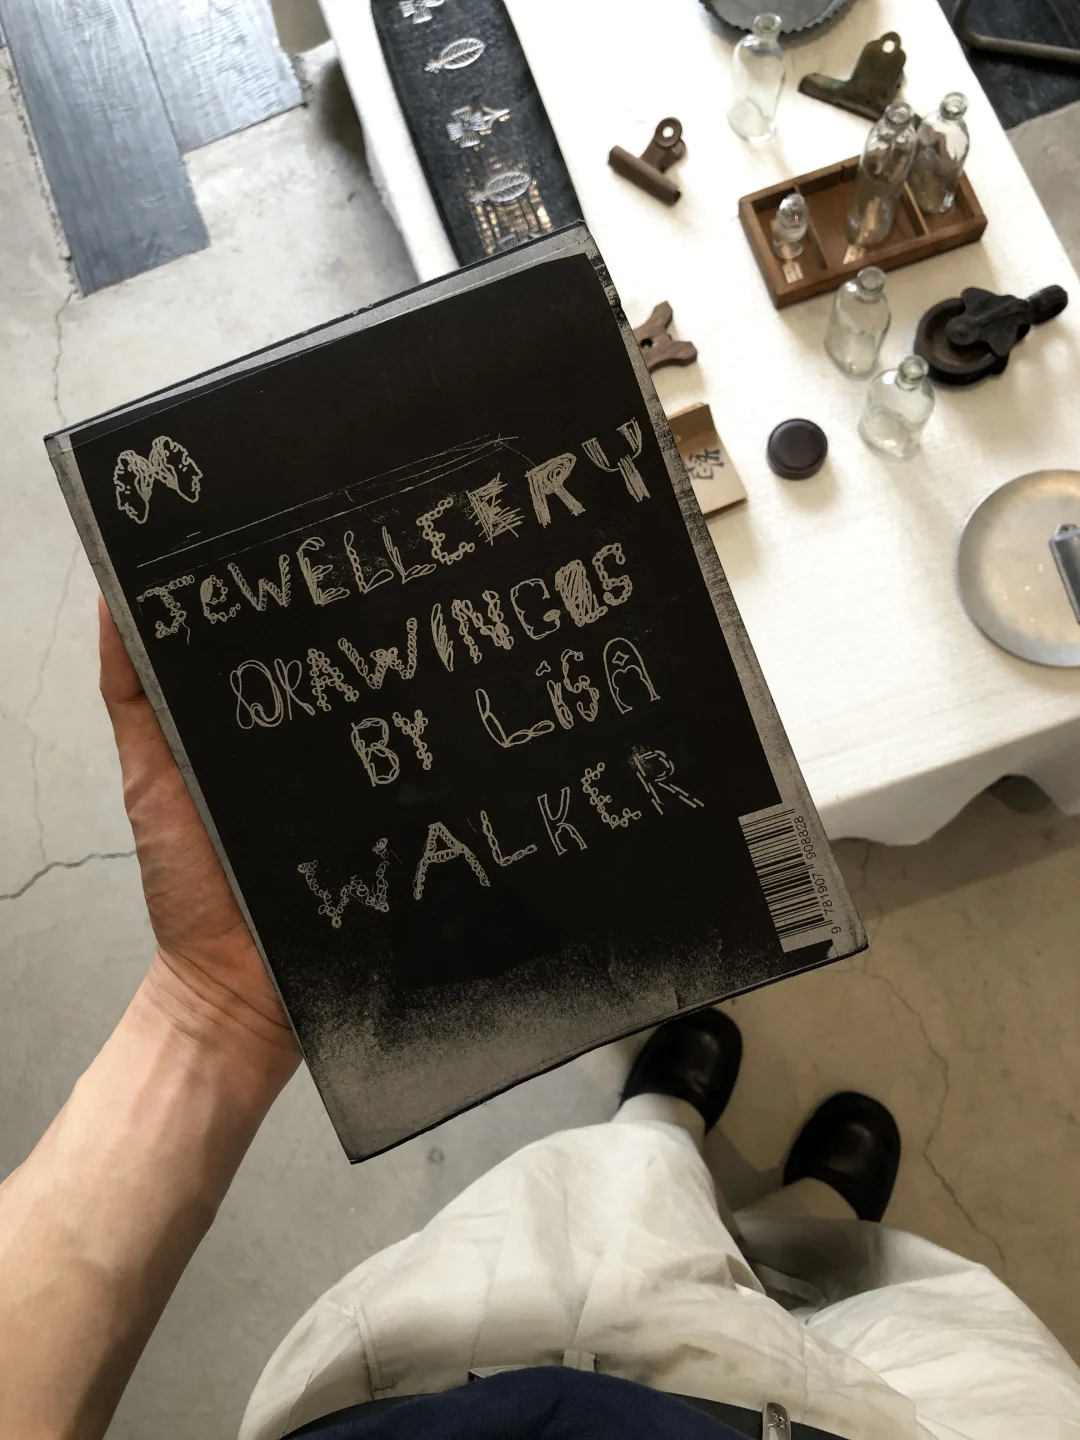 JeWELLERY
DRAWINGS
BY LiSA
WALKER
9 781907 908828